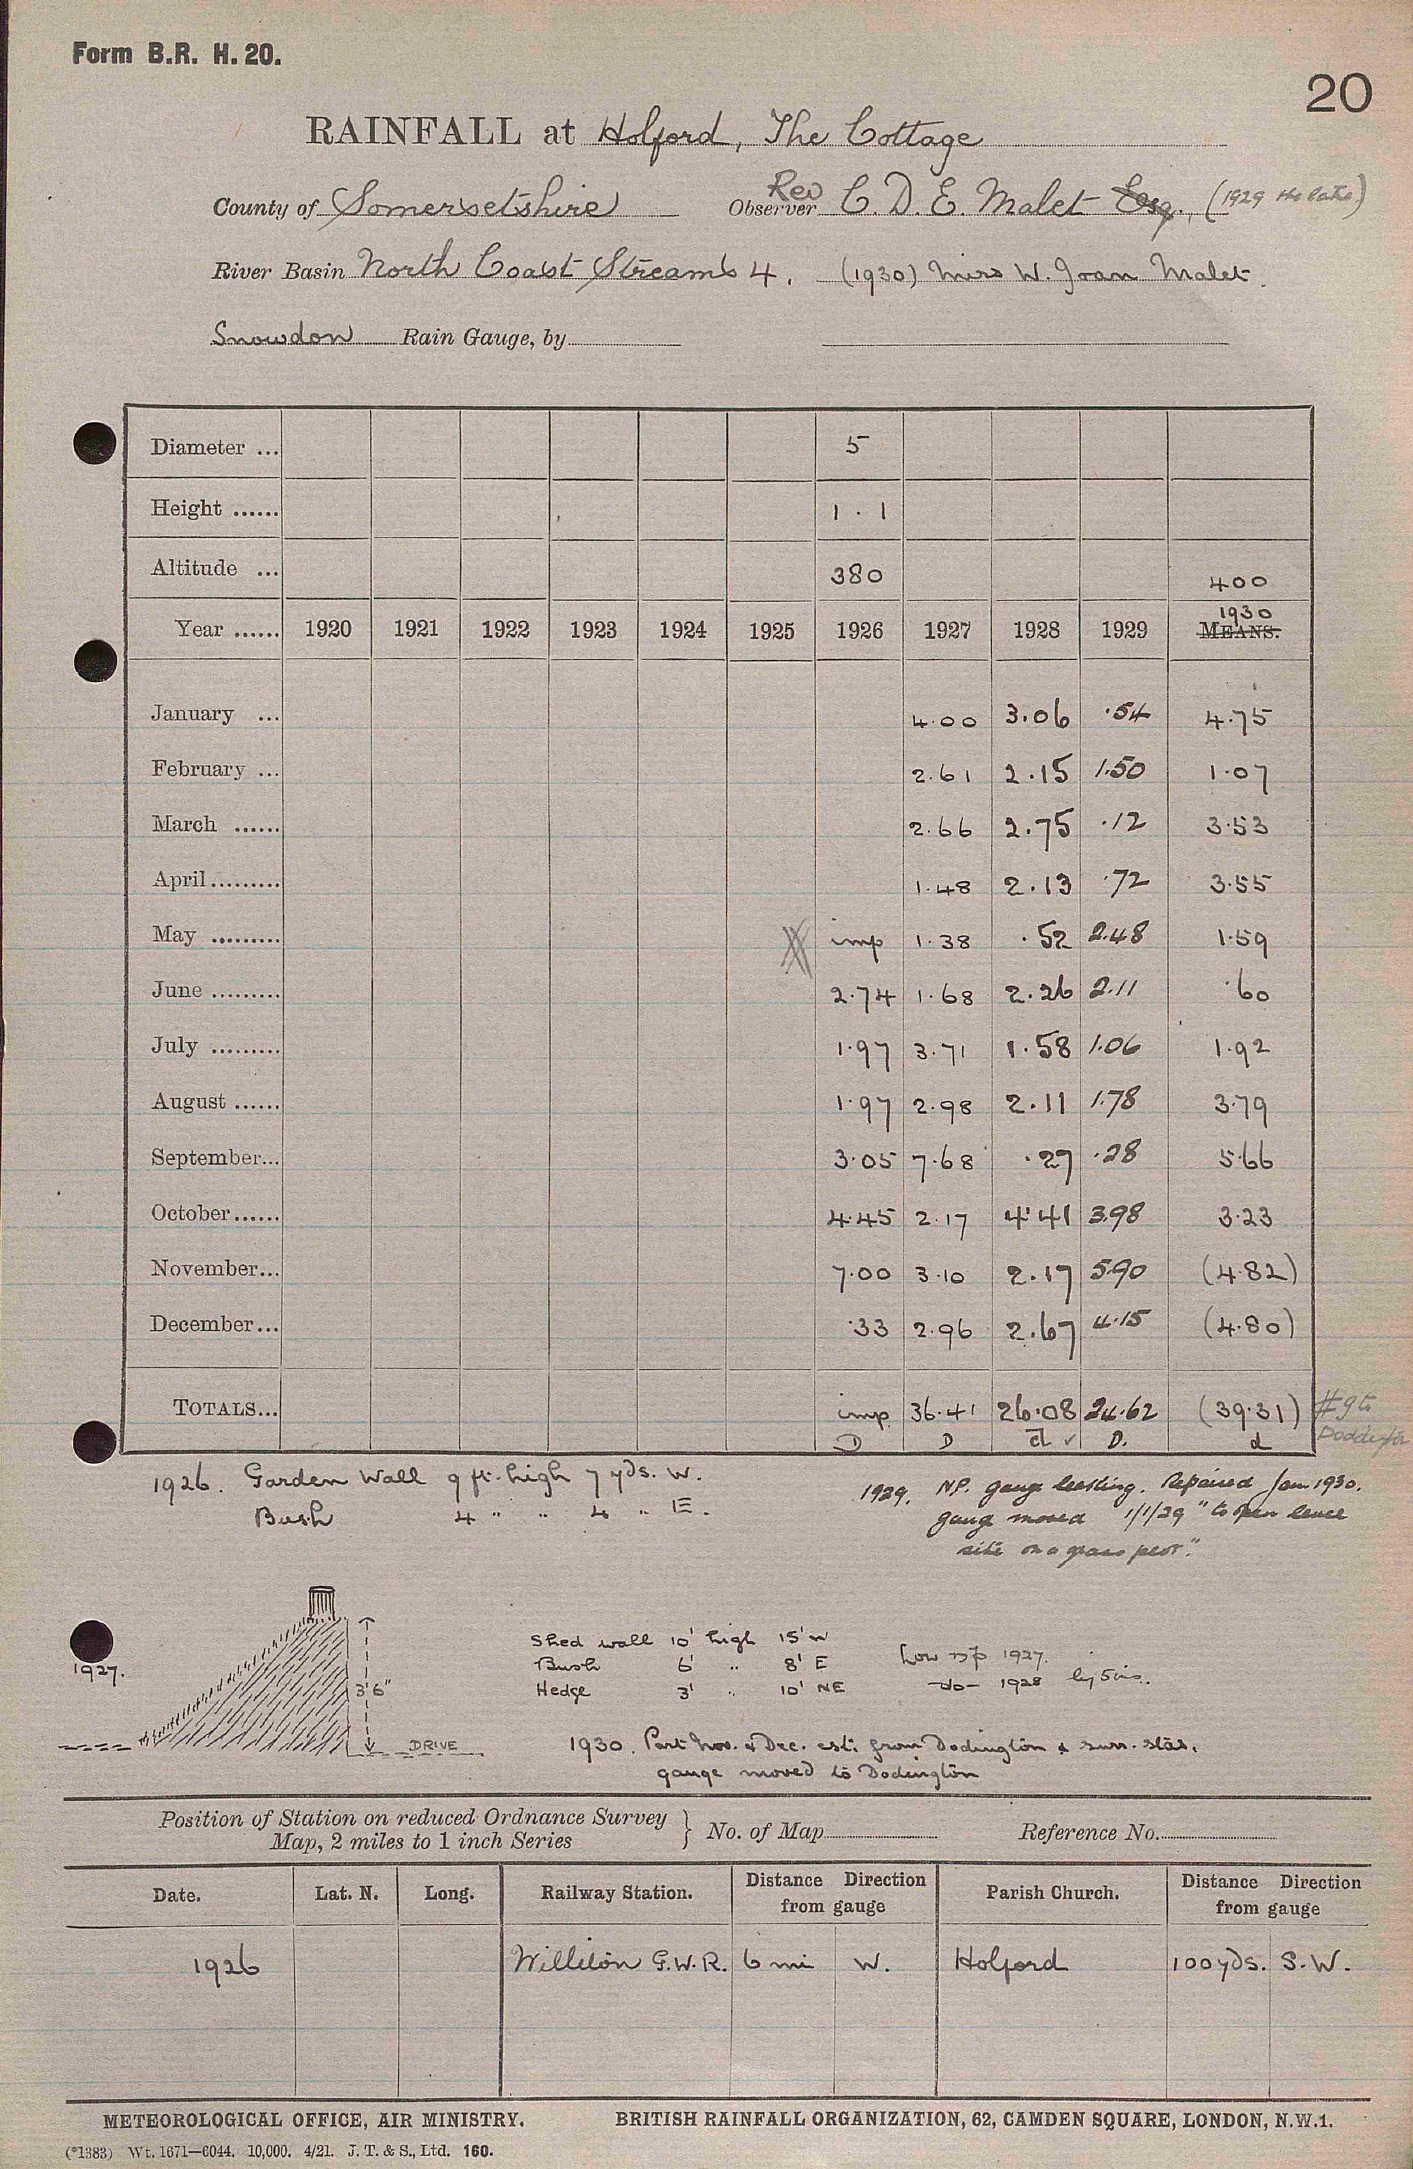 Form B.R. H. 20.
20
RAINFALL at Holford, The Cottage
County of Somersetshire Observer Rev C. D. E. Malet Esq., (1929 the late)
River Basin North Coast Streams 4. (1930) Miss W. Joan Malet.
Snowdon Rain Gauge, by
Diameter ... 5
Height ...... 1 . 1
Altitude ... 380 400
Year ...... 1920 1921 1922 1923 1924 1925 1926 1927 1928 1929 1930 MEANS.
January ... 4.00 3.06 .54 4.75
February ... 2.61 2.15 1.50 1.07
March ...... 2.66 2.75 .12 3.53
April ......... 1.48 2.13 .72 3.55
May ......... imp 1.38 .52 2.48 1.59
June ......... 2.74 1.68 2.26 2.11 .60
July ......... 1.97 3.71 1.58 1.06 1.92
August ...... 1.97 2.98 2.11 1.78 3.79
September... 3.05 7.68 .27 .28 5.66
October...... 4.45 2.17 4.41 3.98 3.23
November... 7.00 3.10 2.17 5.90 (4.82)
December... .33 2.96 2.67 4.15 (4.80)
TOTALS... imp 36.41 26.08 24.62 (39.31)
D D d ✓ D. d
1926. Garden Wall 9 ft. high 7 yds. W.
Bush 4 " " 4 " E.
1929. N.P. gauge leaking. Repaired Jan 1930.
gauge moved 1/1/29 "to open
site on a grass
1927.
3'6"
DRIVE
Shed wall 10' high 15' W
Bush 6' " 8' E
Hedge 3' " 10' NE
Low 1927.
-do- 1928 by 5 ins.
1930. Part Nov. & Dec. est. from Dodington & surr. stas.
gauge moved to Dodington
Position of Station on reduced Ordnance Survey
Map, 2 miles to 1 inch Series } No. of Map Reference No.
Date. Lat. N. Long. Railway Station. Distance Direction from gauge Parish Church. Distance Direction from gauge
1926 Williton G.W.R. 6 mi W. Holford 100 yds. S.W.
METEOROLOGICAL OFFICE, AIR MINISTRY. BRITISH RAINFALL ORGANIZATION, 62, CAMDEN SQUARE, LONDON, N.W.1.
(*1383) Wt. 1671—6044. 10,000. 4/21. J. T. & S., Ltd. 160.